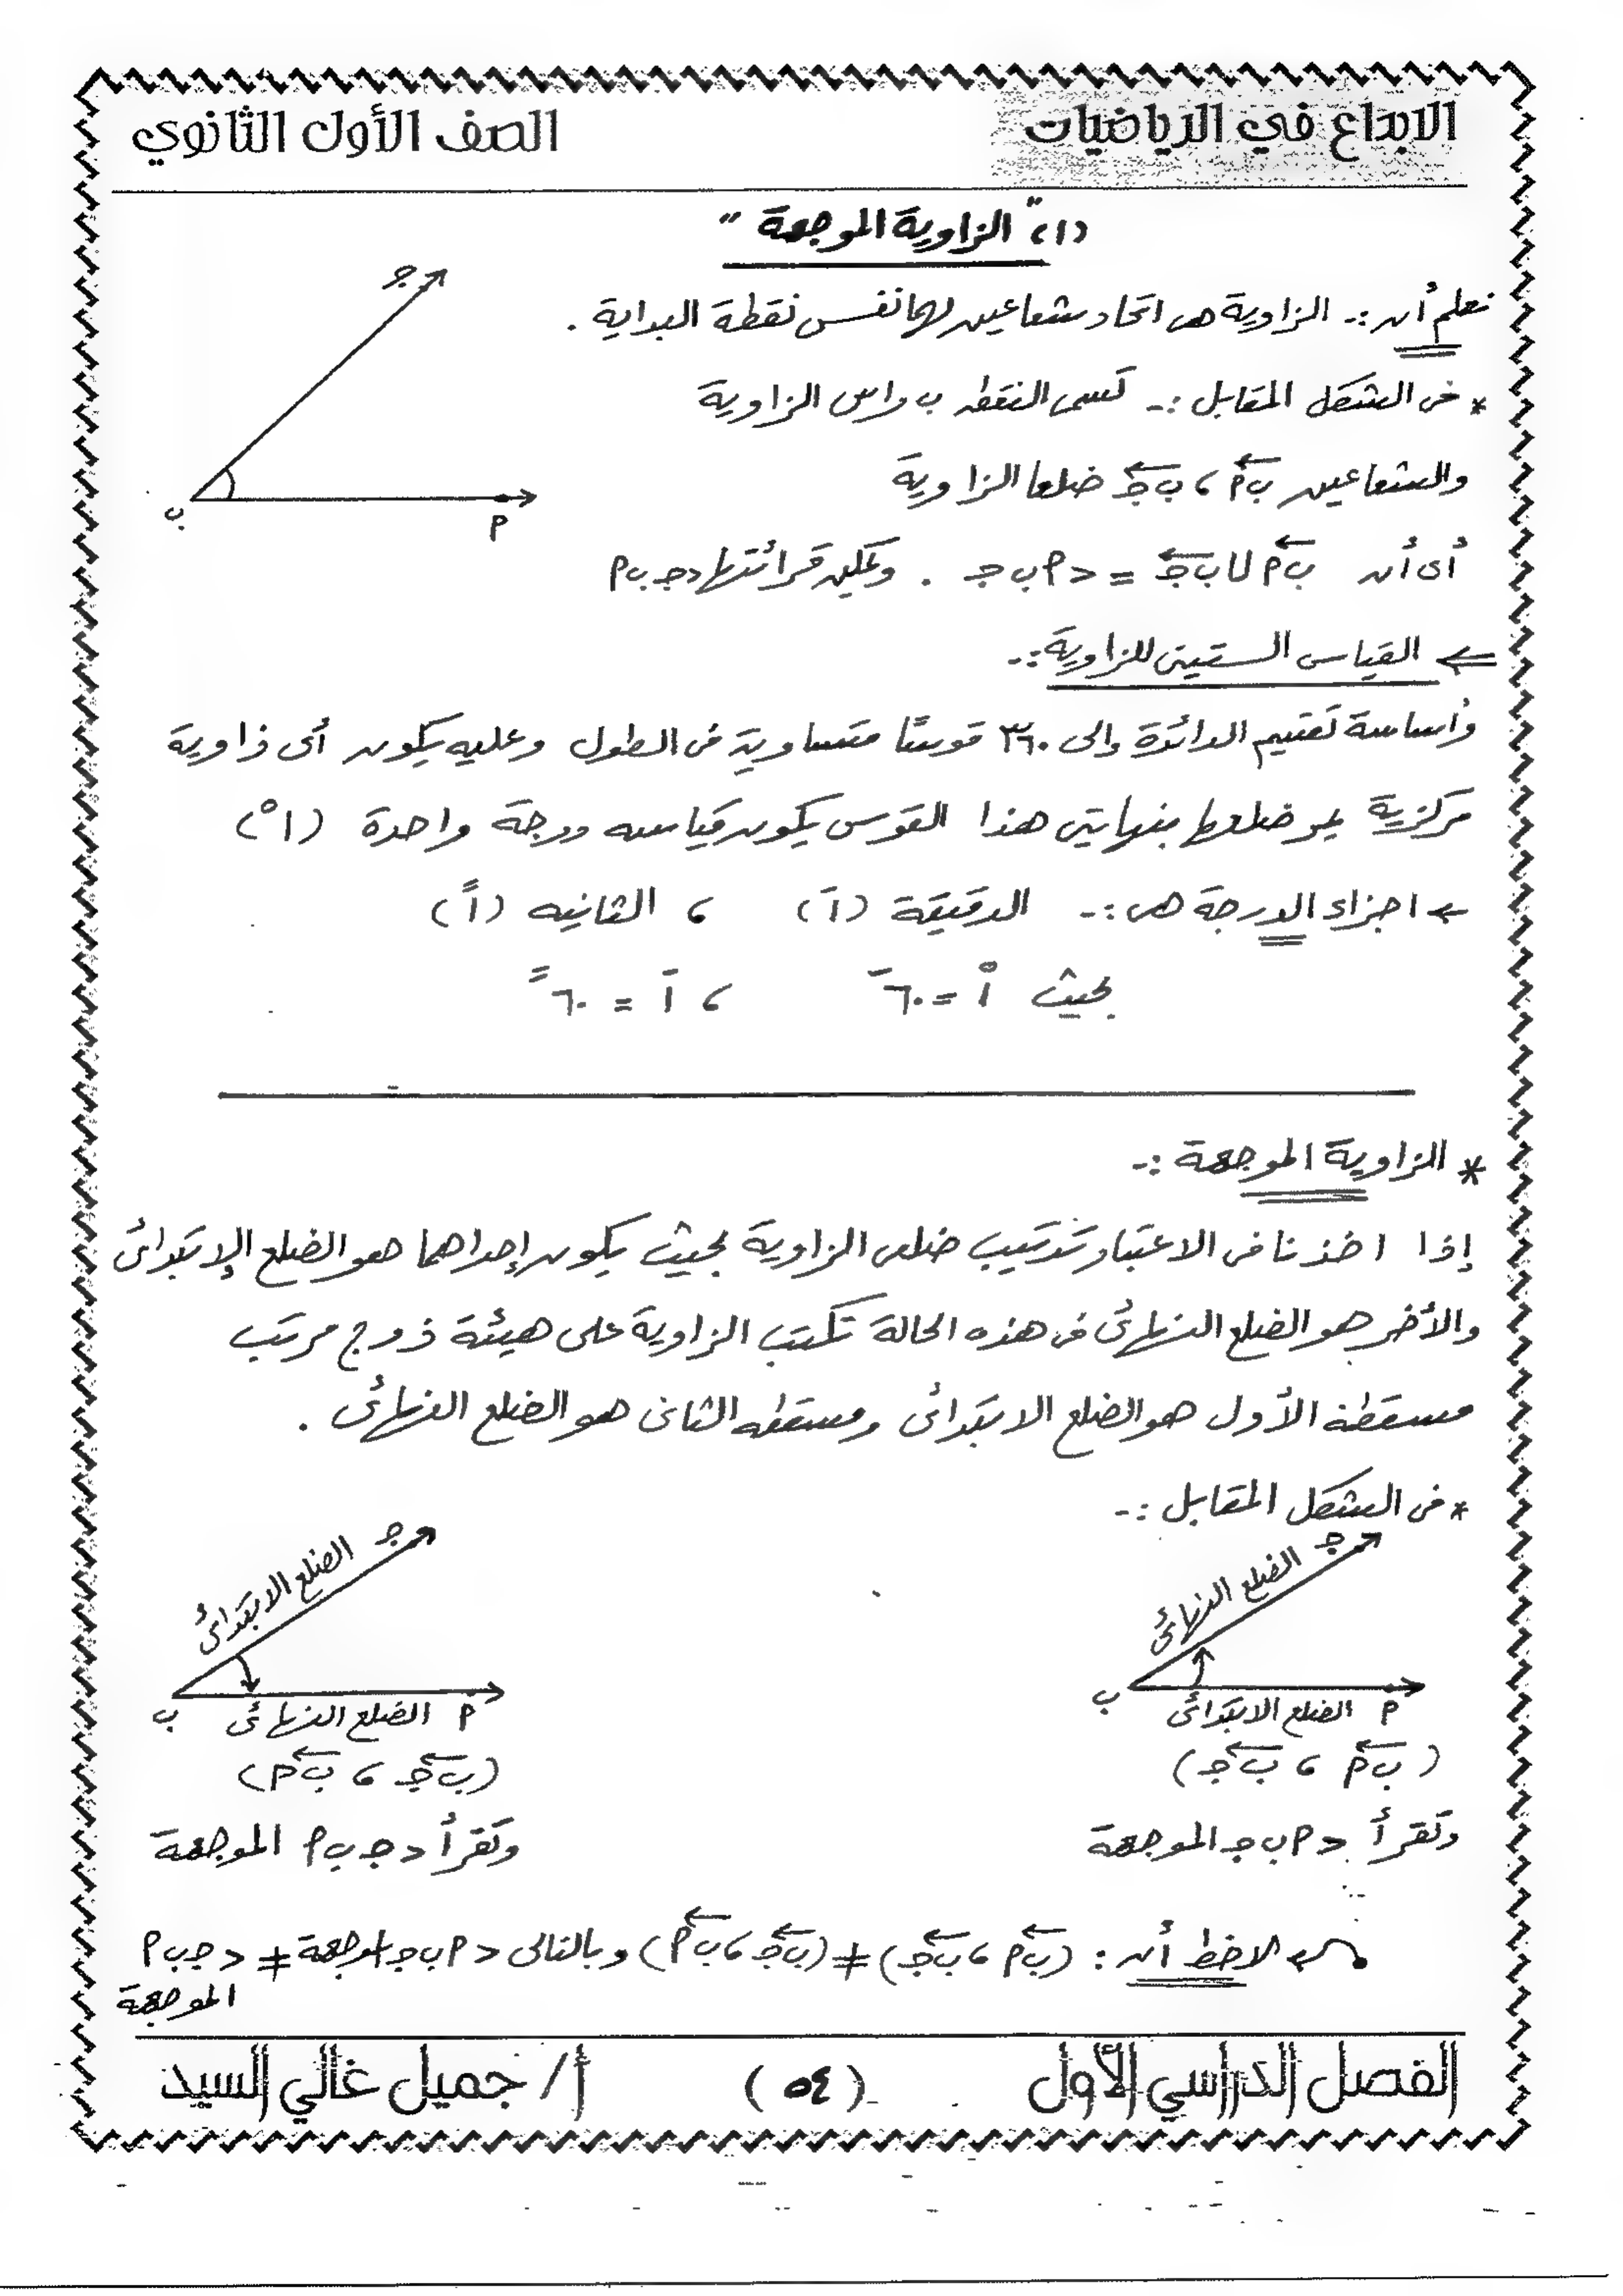 الابداع في الرياضيات
الصف الأول الثانوي
(١) " الزاوية الموجهة "
نعلم أن :- الزاوية هى اتحاد شعاعين لهما نفس نقطة البداية .
* فى الشكل المقابل :- تسمى النقطه ب راس الزاوية
والشعاعين ب أ ، ب جـ ضلعا الزاوية
أى أن ب أ U ب جـ = > أ ب جـ . ويمكن قرائتها > جـ ب أ
جـ
ب
أ
<= القياس الستينى للزاوية :-
وأساسة تقسيم الدائرة إلى ٣٦٠ قوسًا متساوية فى الطول وعليه يكون أى زاوية
مركزية يمر ضلعاها بنهايتى هذا القوس يكون قياسه درجة واحدة (١°)
← اجزاء الدرجة هى :- الدقيقة (١َ) ، الثانيه (١ً)
بحيث ١° = ٦٠َ ، ١َ = ٦٠ً
* الزاوية الموجهة :-
إذا اخذنا فى الاعتبار ترتيب ضلعى الزاوية بحيث يكون إحداهما هو الضلع الإبتدائى
والأخر هو الضلع النهائى فى هذه الحالة تكتب الزاوية على هيئة زوج مرتب
مسقطة الأول هو الضلع الابتدائى ومسقطه الثانى هو الضلع النهائى .
* فى الشكل المقابل :-
جـ
الضلع النهائى
ب
الضلع الابتدائى
أ
(ب أ ، ب جـ)
وتقرأ > أ ب جـ الموجهة
جـ
الضلع الابتدائى
ب
الضلع النهائى
أ
(ب جـ ، ب أ)
وتقرأ > جـ ب أ الموجهة
لاحظ أن : (ب أ ، ب جـ) ≠ (ب جـ ، ب أ) وبالتالى > أ ب جـ الموجهة ≠ > جـ ب أ
الموجهة
الفصل الدراسي الأول
(٥٤)
أ / جميل غالي السيد